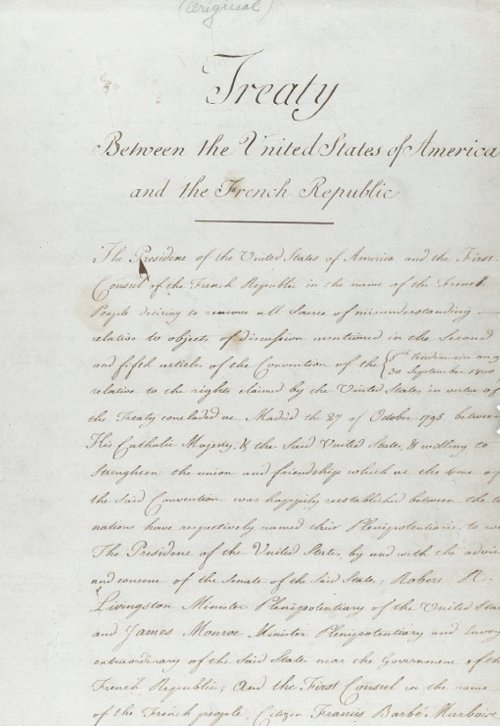 (Original)
Treaty
Between the United States of America
and the French Republic
The President of the United States of America and the First
Consul of the French Republic in the name of the French
People desiring to remove all Source of misunderstanding
relative to objects of discussion mentioned in the Second
and fifth articles of the Convention of the {8th Vendémiaire an 9
30 September 1800
relative to the rights claimed by the United States in virtue of
the Treaty concluded at Madrid the 27 of October 1795 between
His Catholic Majesty, & the Said United States, & willing to
Strengthen the union and friendship which at the time of
the Said Convention was happily reestablished between the two
nations have respectively named their Plenipotentiaries to wit
The President of the United States, by and with the advice
and consent of the Senate of the Said States; Robert R.
Livingston Minister Plenipotentiary of the United States
and James Monroe Minister Plenipotentiary and Envoy
extraordinary of the Said States near the Government of the
French Republic; And the First Consul in the name
of the French people, Citizen Francis Barbé Marbois